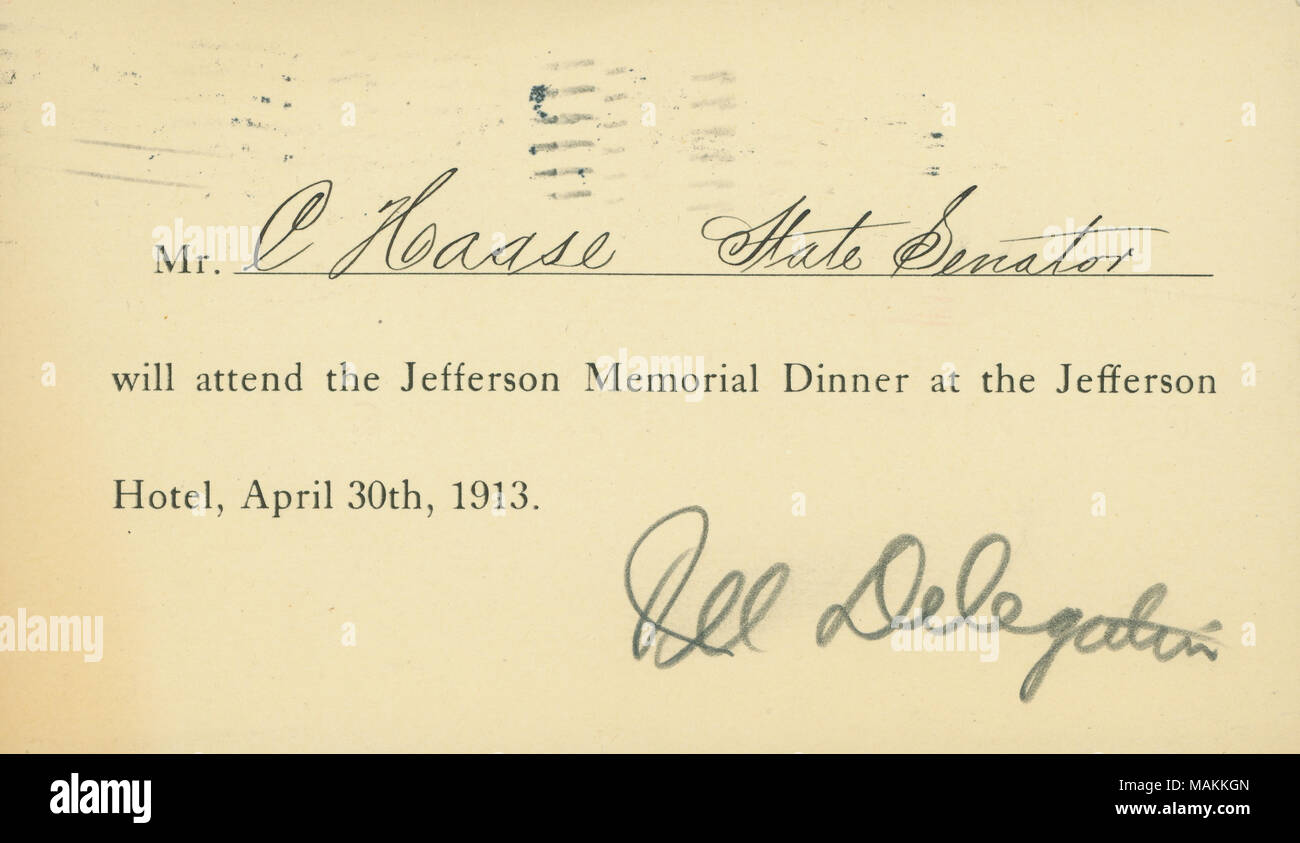 Mr. C Haase State Senator
will attend the Jefferson Memorial Dinner at the Jefferson
Hotel, April 30th, 1913.
Ill Delegation
alamy
Image ID: MAKKGN
www.alamy.com